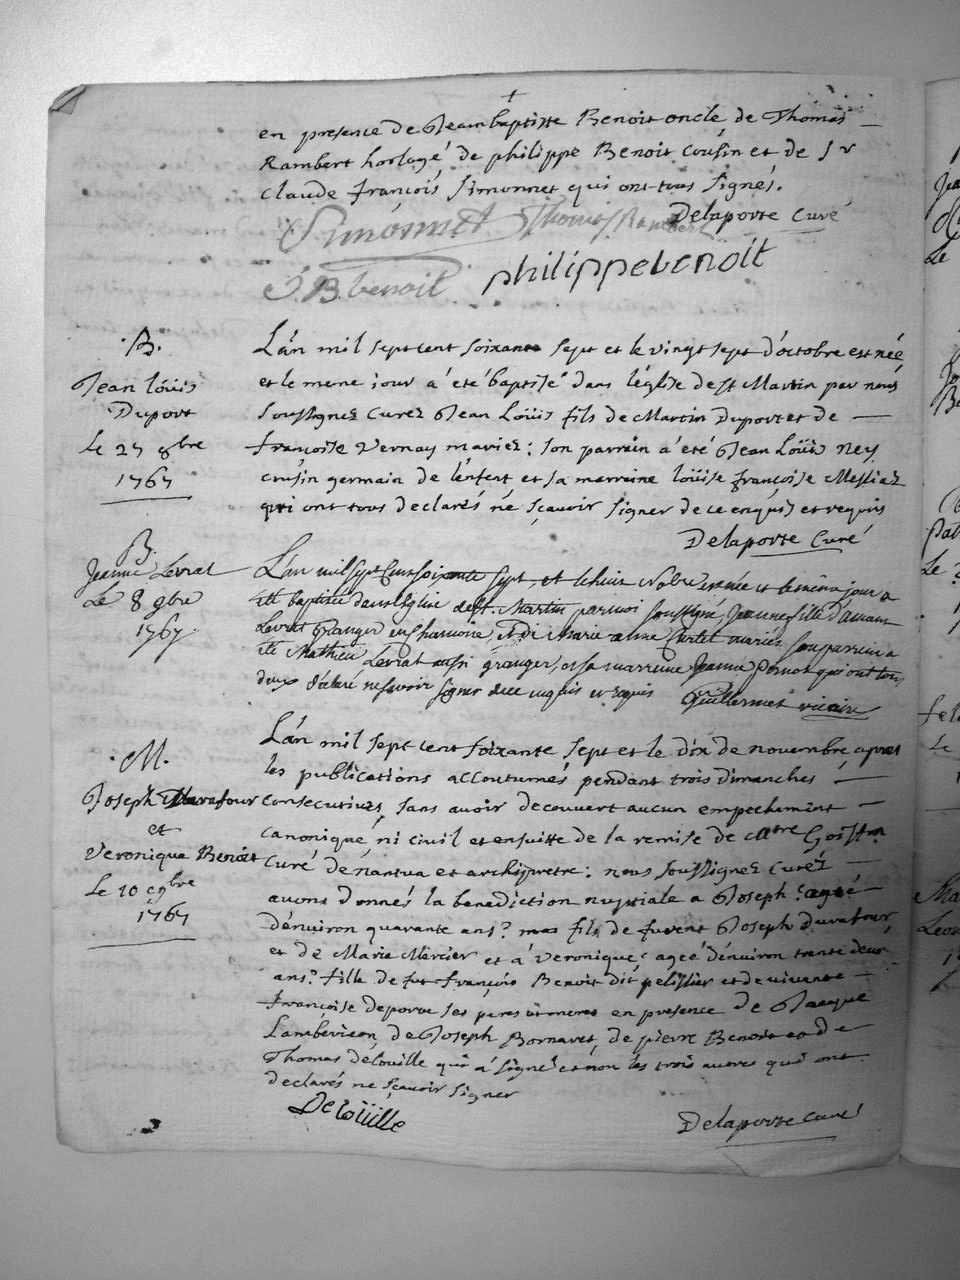 en presence de Jean baptiste Benoit oncle de Thomas
Rambert horlogé de philippe Benoit Cousin et de Sr
Claude françois Simonnet qui ont tous signés.
Delaporte Curé
Simonnet Thomas Rambert
J. B. benoit philippe benoit
B.
Jean loüis
Duport
Le 27 8bre
1767
L'an mil sept cent soixante sept et le vingt sept d'octobre est née
et le meme jour a été baptisé dans l'église de st Martin par nous
soussignez Curez Jean Loüis fils de Martin Duport et de
françoise Vernay mariez : son parrain a été Jean Loüis Ney
cousin germain de l'enfent et sa marraine loüise françoise Messiaz
qui ont tous declarés né sçavoir signer de ce enquis et requis
Delaporte Curé
B.
Jeanne Levrat
Le 8 9bre
1767
L'an mil sept Cent soixante sept, et le huit Nobre est née et le même jour a
été baptisée dans l'Eglise de St. Martin par moi soussigné, Jeanne fille d'
Levrat Granger en Chamoise, et de Marie anne Curtet mariez, son parrain a
été Mathieu Levrat aussi granger, et sa marreine Jeanne qui ont tous
deux déclaré ne sçavoir signer de ce enquis et requis Guillermet vicaire
M.
Joseph Duvafour
et
Veronique Benoit
Le 10 9bre
1767
L'an mil sept cent soixante sept et le dix de novembre, apres
les publications accoutumés pendant trois dimanches
consecutives, sans avoir decouvert aucun empechement
canonique ni civil et ensuitte de la remise de Mtre
Curé de nantua et archipretre : nous soussignez Curez
avons donnés la benediction nuptiale a Joseph : agé
d'environ quarante ans : fils de fuvent Joseph Duvafour
et de Marie Mercier et a Veronique : ageé d'environ trente deux
ans : fille de fut françois Benoit dit pelissier et de vivente
françoise deporte ses peres et meres en presence de Jacque
Lambercion, de Joseph Bornaret, de pierre Benoit et de
Thomas deloüille qui a signé et non les trois autres qui ont
declarés ne sçavoir signer
Deloüille
Delaporte Curé